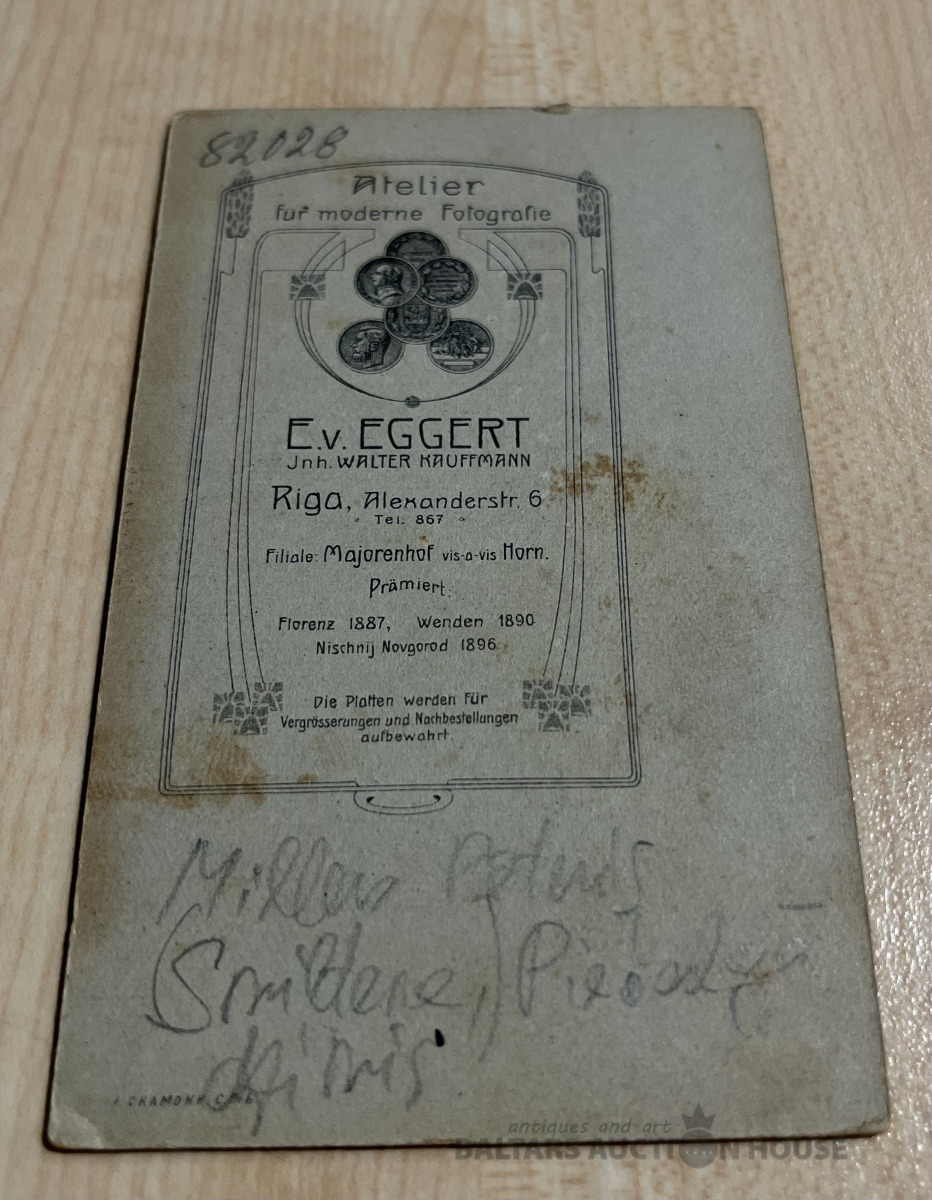 82028
Atelier
für moderne Fotografie
E.v. EGGERT
Jnh. WALTER KAUFFMANN
Riga, Alexanderstr. 6
Tel. 867
Filiale: Majorenhof vis-a-vis Horn.
Prämiert:
Florenz 1887, Wenden 1890
Nischnij Novgorod 1896
Die Platten werden für
Vergrösserungen und Nachbestellungen
aufbewahrt.
(Smiltene,)
antiques and art
BALTARS AUCTION HOUSE